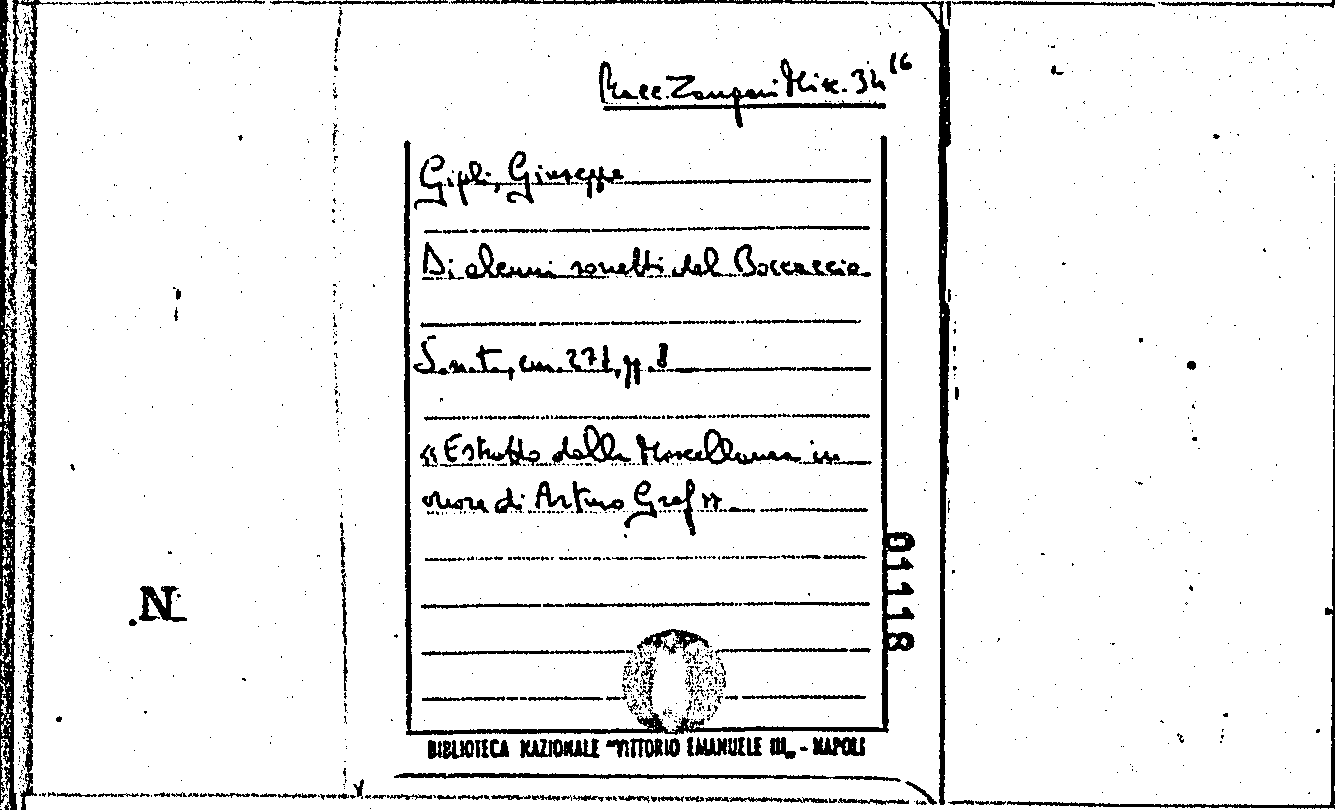 Racc. Zangari Misc. 34 16
Gigli, Giuseppe
Di alcuni sonetti del Boccaccio.
S.n.t., cm. 27½, pp. 8
« Estratto dalla Miscellanea in
onore di Arturo Graf ».
01118
N
BIBLIOTECA NAZIONALE "VITTORIO EMANUELE III„ - NAPOLI